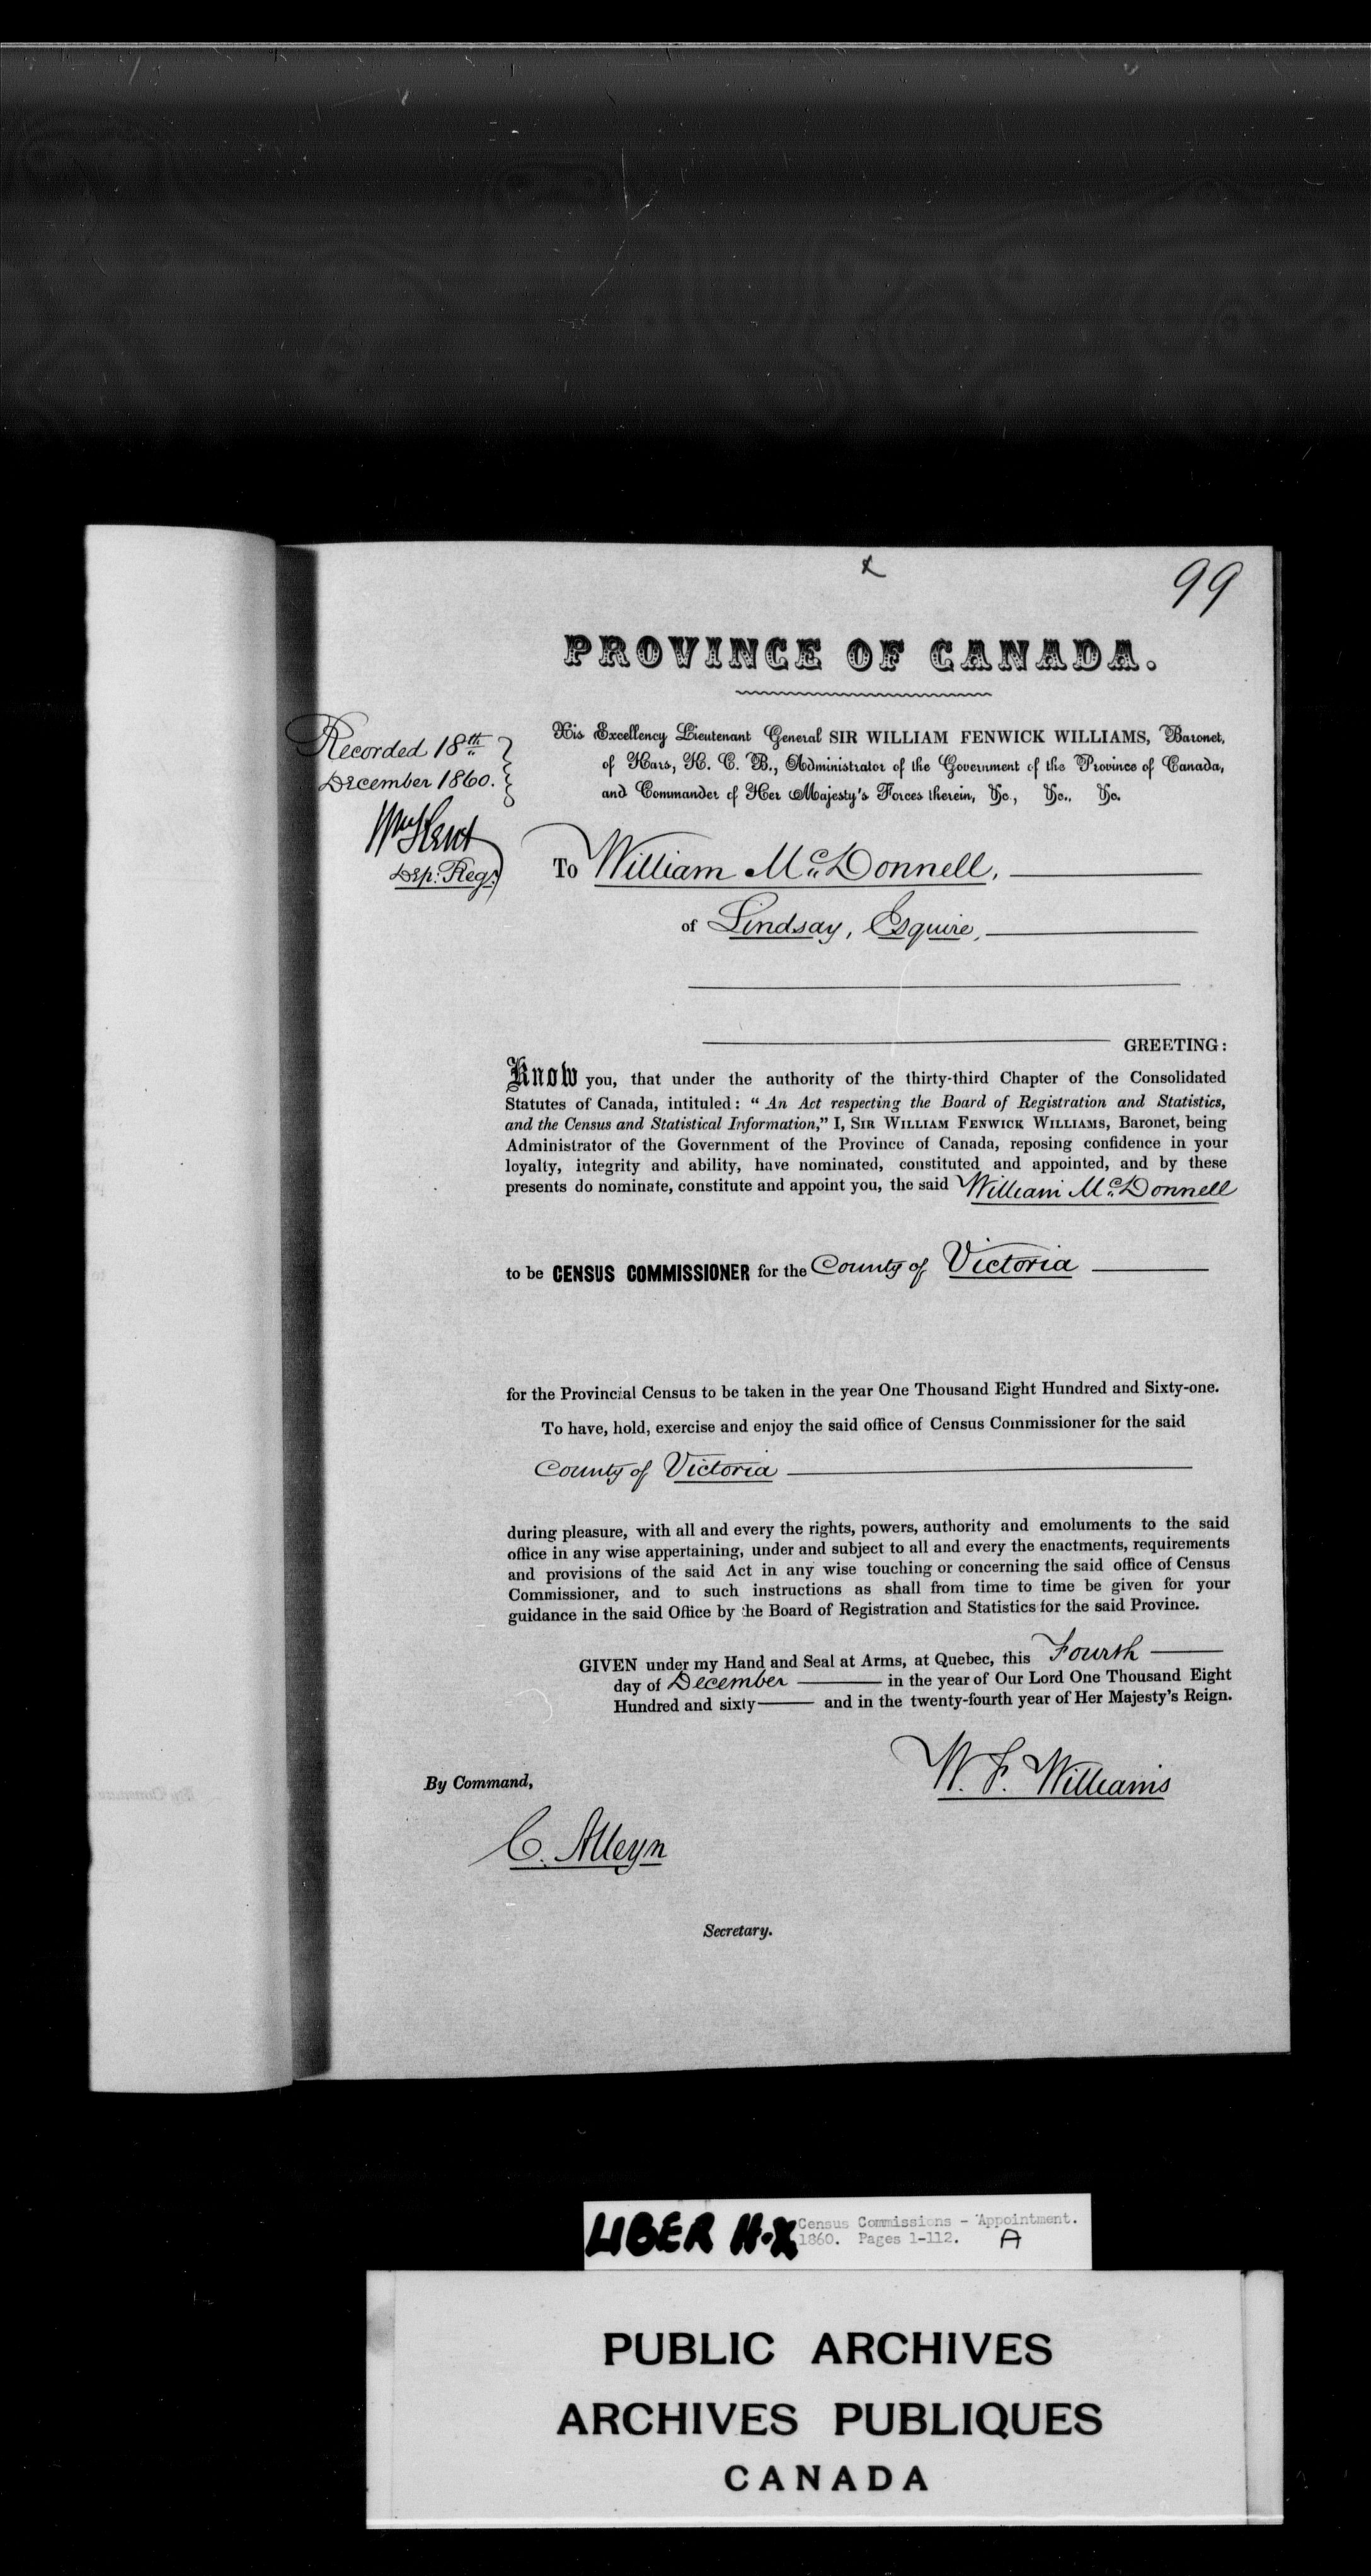 x
99
PROVINCE OF CANADA.
Recorded 18th
December 1860.
Wm Kent
Dep: Regr.
His Excellency Lieutenant General SIR WILLIAM FENWICK WILLIAMS, Baronet,
of Kars, K. C. B., Administrator of the Government of the Province of Canada,
and Commander of Her Majesty's Forces therein, &c., &c., &c.
To William McDonnell,
of Lindsay, Esquire,
GREETING:
Know you, that under the authority of the thirty-third Chapter of the Consolidated
Statutes of Canada, intituled: "An Act respecting the Board of Registration and Statistics,
and the Census and Statistical Information," I, SIR WILLIAM FENWICK WILLIAMS, Baronet, being
Administrator of the Government of the Province of Canada, reposing confidence in your
loyalty, integrity and ability, have nominated, constituted and appointed, and by these
presents do nominate, constitute and appoint you, the said William McDonnell
to be CENSUS COMMISSIONER for the County of Victoria
for the Provincial Census to be taken in the year One Thousand Eight Hundred and Sixty-one.
To have, hold, exercise and enjoy the said office of Census Commissioner for the said
County of Victoria
during pleasure, with all and every the rights, powers, authority and emoluments to the said
office in any wise appertaining, under and subject to all and every the enactments, requirements
and provisions of the said Act in any wise touching or concerning the said office of Census
Commissioner, and to such instructions as shall from time to time be given for your
guidance in the said Office by the Board of Registration and Statistics for the said Province.
GIVEN under my Hand and Seal at Arms, at Quebec, this Fourth
day of December in the year of Our Lord One Thousand Eight
Hundred and sixty and in the twenty-fourth year of Her Majesty's Reign.
W. F. Williams
By Command,
C. Alleyn
Secretary.
LIBER H-X Census Commissions - Appointment.
1860. Pages 1-112. A
PUBLIC ARCHIVES
ARCHIVES PUBLIQUES
CANADA